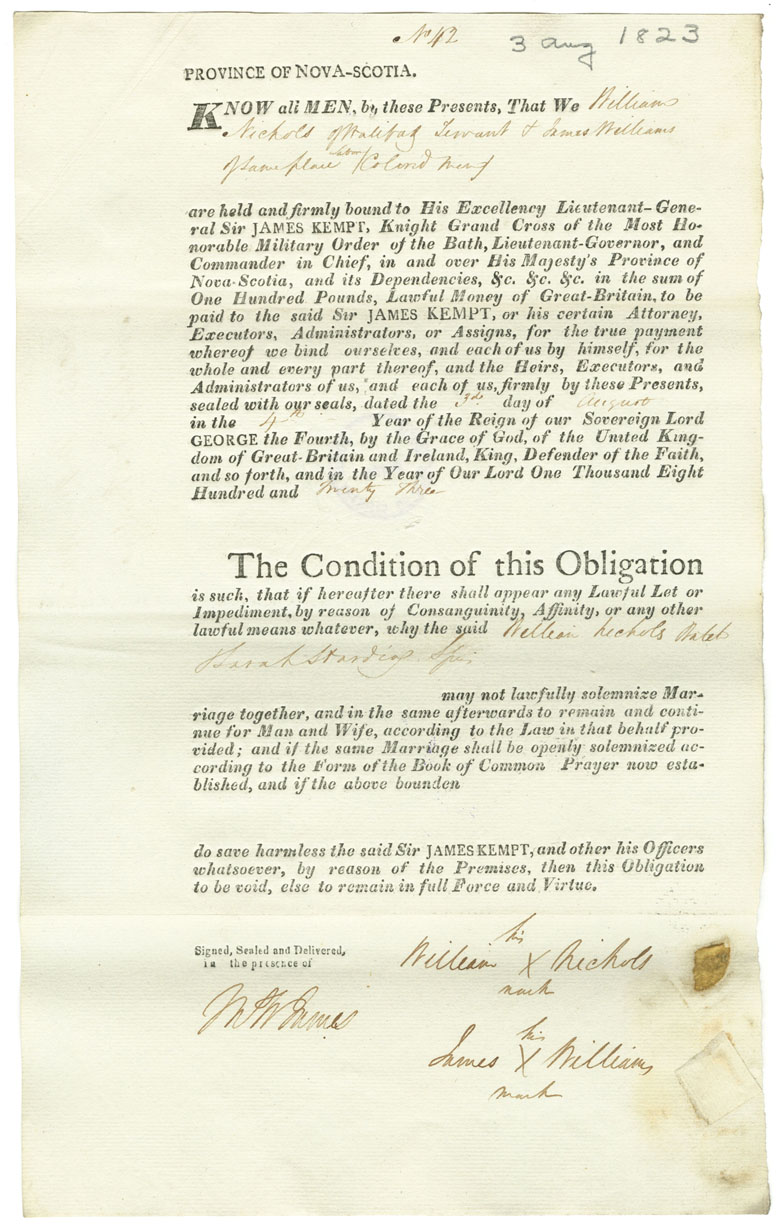 No 42
3 Aug 1823
PROVINCE OF NOVA-SCOTIA.
KNOW all MEN, by these Presents, That We William
Nichols of Halifax Servant & James Williams
of same place (Colored Men)
are held and firmly bound to His Excellency Lieutenant-Gene-
ral Sir JAMES KEMPT, Knight Grand Cross of the Most Ho-
norable Military Order of the Bath, Lieutenant-Governor, and
Commander in Chief, in and over His Majesty's Province of
Nova-Scotia, and its Dependencies, &c. &c. &c. in the sum of
One Hundred Pounds, Lawful Money of Great-Britain, to be
paid to the said Sir JAMES KEMPT, or his certain Attorney,
Executors, Administrators, or Assigns, for the true payment
whereof we bind ourselves, and each of us by himself, for the
whole and every part thereof, and the Heirs, Executors, and
Administrators of us, and each of us, firmly by these Presents,
sealed with our seals, dated the 3rd day of August
in the 4th Year of the Reign of our Sovereign Lord
GEORGE the Fourth, by the Grace of God, of the United King-
dom of Great-Britain and Ireland, King, Defender of the Faith,
and so forth, and in the Year of Our Lord One Thousand Eight
Hundred and Twenty Three
The Condition of this Obligation
is such, that if hereafter there shall appear any Lawful Let or
Impediment, by reason of Consanguinity, Affinity, or any other
lawful means whatever, why the said William Nichols
Sarah
may not lawfully solemnize Mar-
riage together, and in the same afterwards to remain and conti-
nue for Man and Wife, according to the Law in that behalf pro-
vided; and if the same Marriage shall be openly solemnized ac-
cording to the Form of the Book of Common Prayer now esta-
blished, and if the above bounden
do save harmless the said Sir JAMES KEMPT, and other his Officers
whatsoever, by reason of the Premises, then this Obligation
to be void, else to remain in full Force and Virtue.
Signed, Sealed and Delivered,
in the presence of
his
William X Nichols
mark
James
his
James X Williams
mark